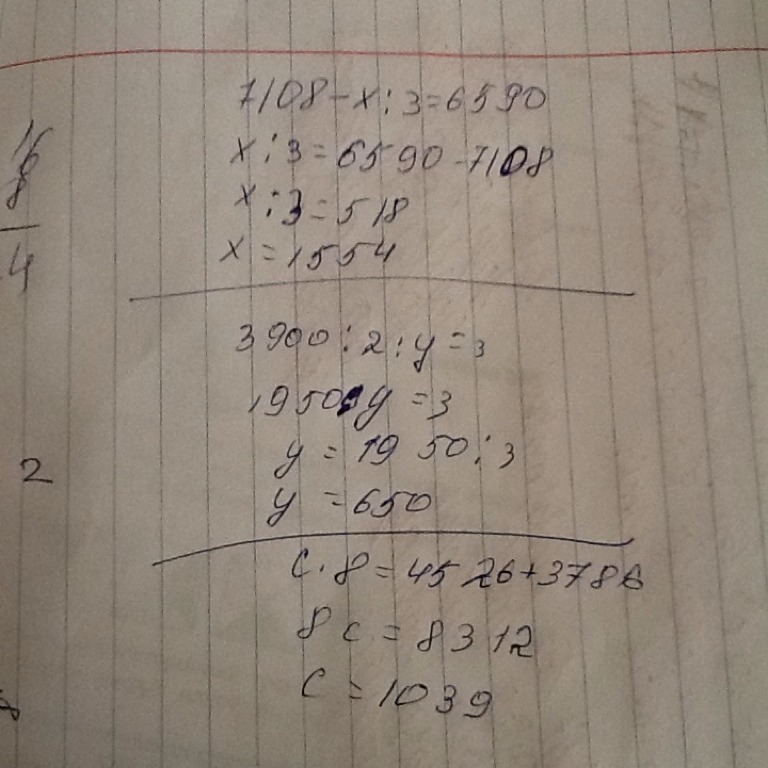 7108-x:3=6590
x:3=6590-7108
x:3=518
x=1554
3900:2:y=3
1950:y=3
y=1950:3
y=650
c·8=4526+3786
8c=8312
c=1039
16
8
4
2
8